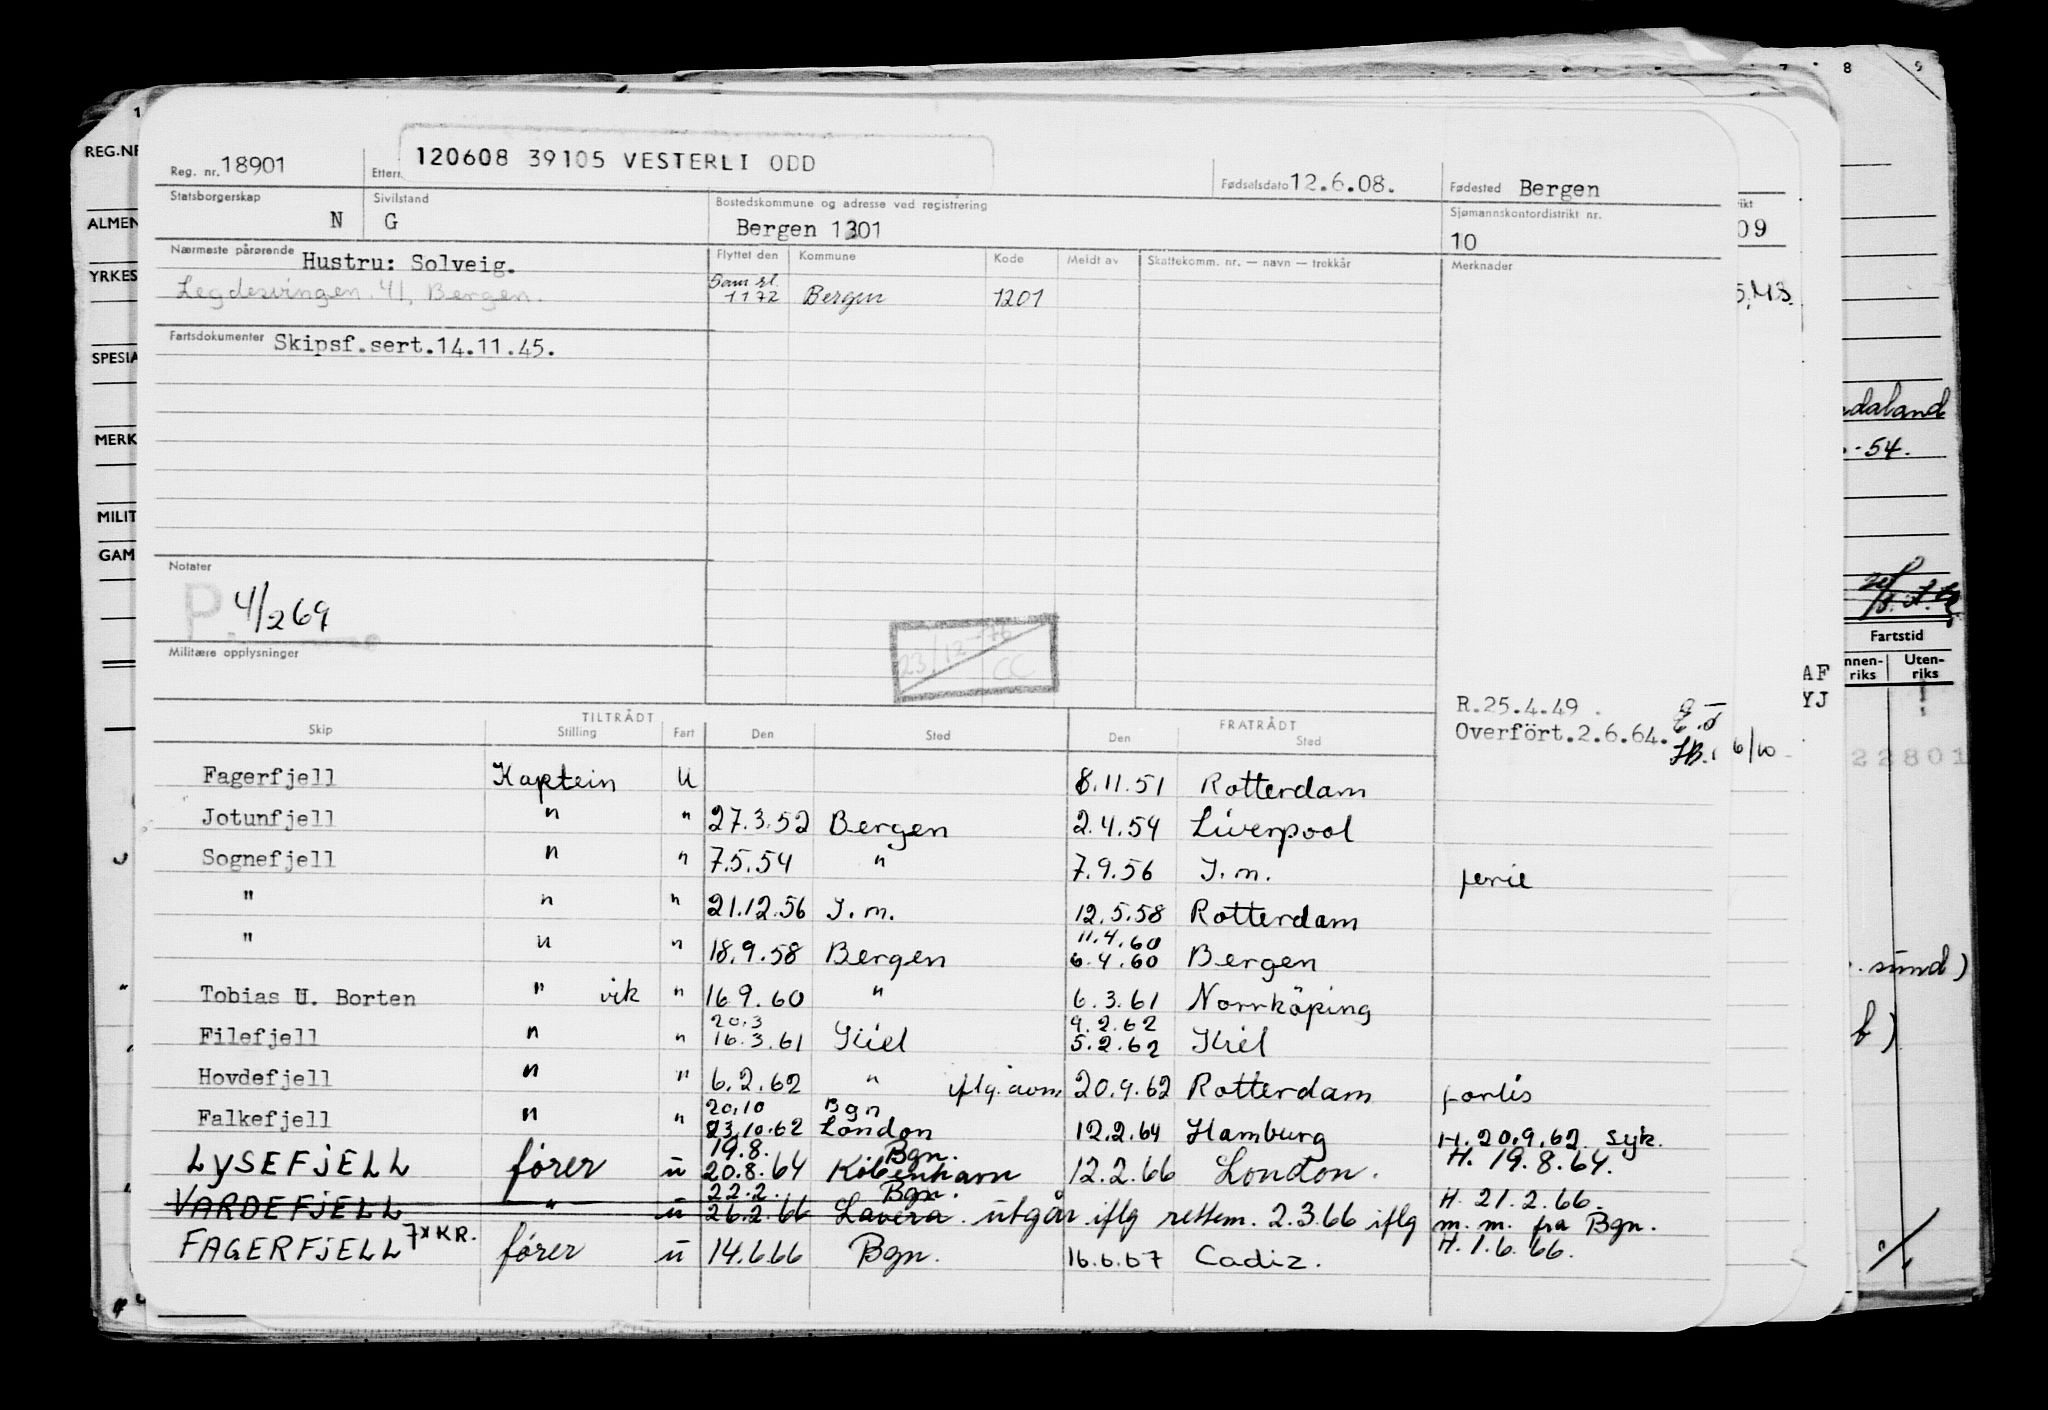 120608 39105 VESTERLI ODD
Reg. nr. 18901 Ettern Fødselsdato 12.6.08. Fødested Bergen
Statsborgerskap N Sivilstand G Bostedskommune og adresse ved registrering Bergen 1301 Sjømannskontordistrikt nr. 10
Nærmeste pårørende Hustru: Solveig. Flyttet den Kommune Kode Meldt av Skattekomm. nr. — navn — trekkår Merknader
Legdesvingen 41, Bergen. 1172 Bergen 1201
Fartsdokumenter Skipsf.sert.14.11.45.
Notater
P. 4/269
Militære opplysninger
23/12-76 CC
R.25.4.49.
Overfört.2.6.64.
TILTRÅDT FRATRÅDT
Skip Stilling Fart Den Sted Den Sted
Fagerfjell Kaptein U 8.11.51 Rotterdam
Jotunfjell " " 27.3.52 Bergen 2.4.54 Liverpool
Sognefjell " " 7.5.54 " 7.9.56 I.m. ferie
" " " 21.12.56 I.m. 12.5.58 Rotterdam
11.4.60
" " " 18.9.58 Bergen 6.4.60 Bergen
Tobias U. Borten " vik " 16.9.60 " 6.3.61 Norrköping
20.3 9.2.62
Filefjell " " 16.3.61 Kiel 5.2.62 Kiel
Hovdefjell " " 6.2.62 " iflg. avm 20.9.62 Rotterdam forlis
20.10 Bgn
Falkefjell " " 23.10.62 London 12.2.64 Hamburg H. 20.9.62. syk.
19.8. Bgn. H. 19.8.64.
LYSEFJELL fører u 20.8.64 Köbenhamn 12.2.66 London.
22.2. Bgn. H. 21.2.66.
VARDEFJELL " u 26.2.66 Lavera. utgår iflg rettem. 2.3.66 iflg m.m. fra Bgn.
FAGERFJELL 7xKR. fører u 14.6.66 Bgn. 16.6.67 Cadiz. H.1.6.66.
REG.NR
ALMEN
YRKES
SPESIA
MERK
MILIT
GAM
7 8 9
09
daland
-54.
Fartstid
Uten-
riks riks
AF
YJ
22801
sund)